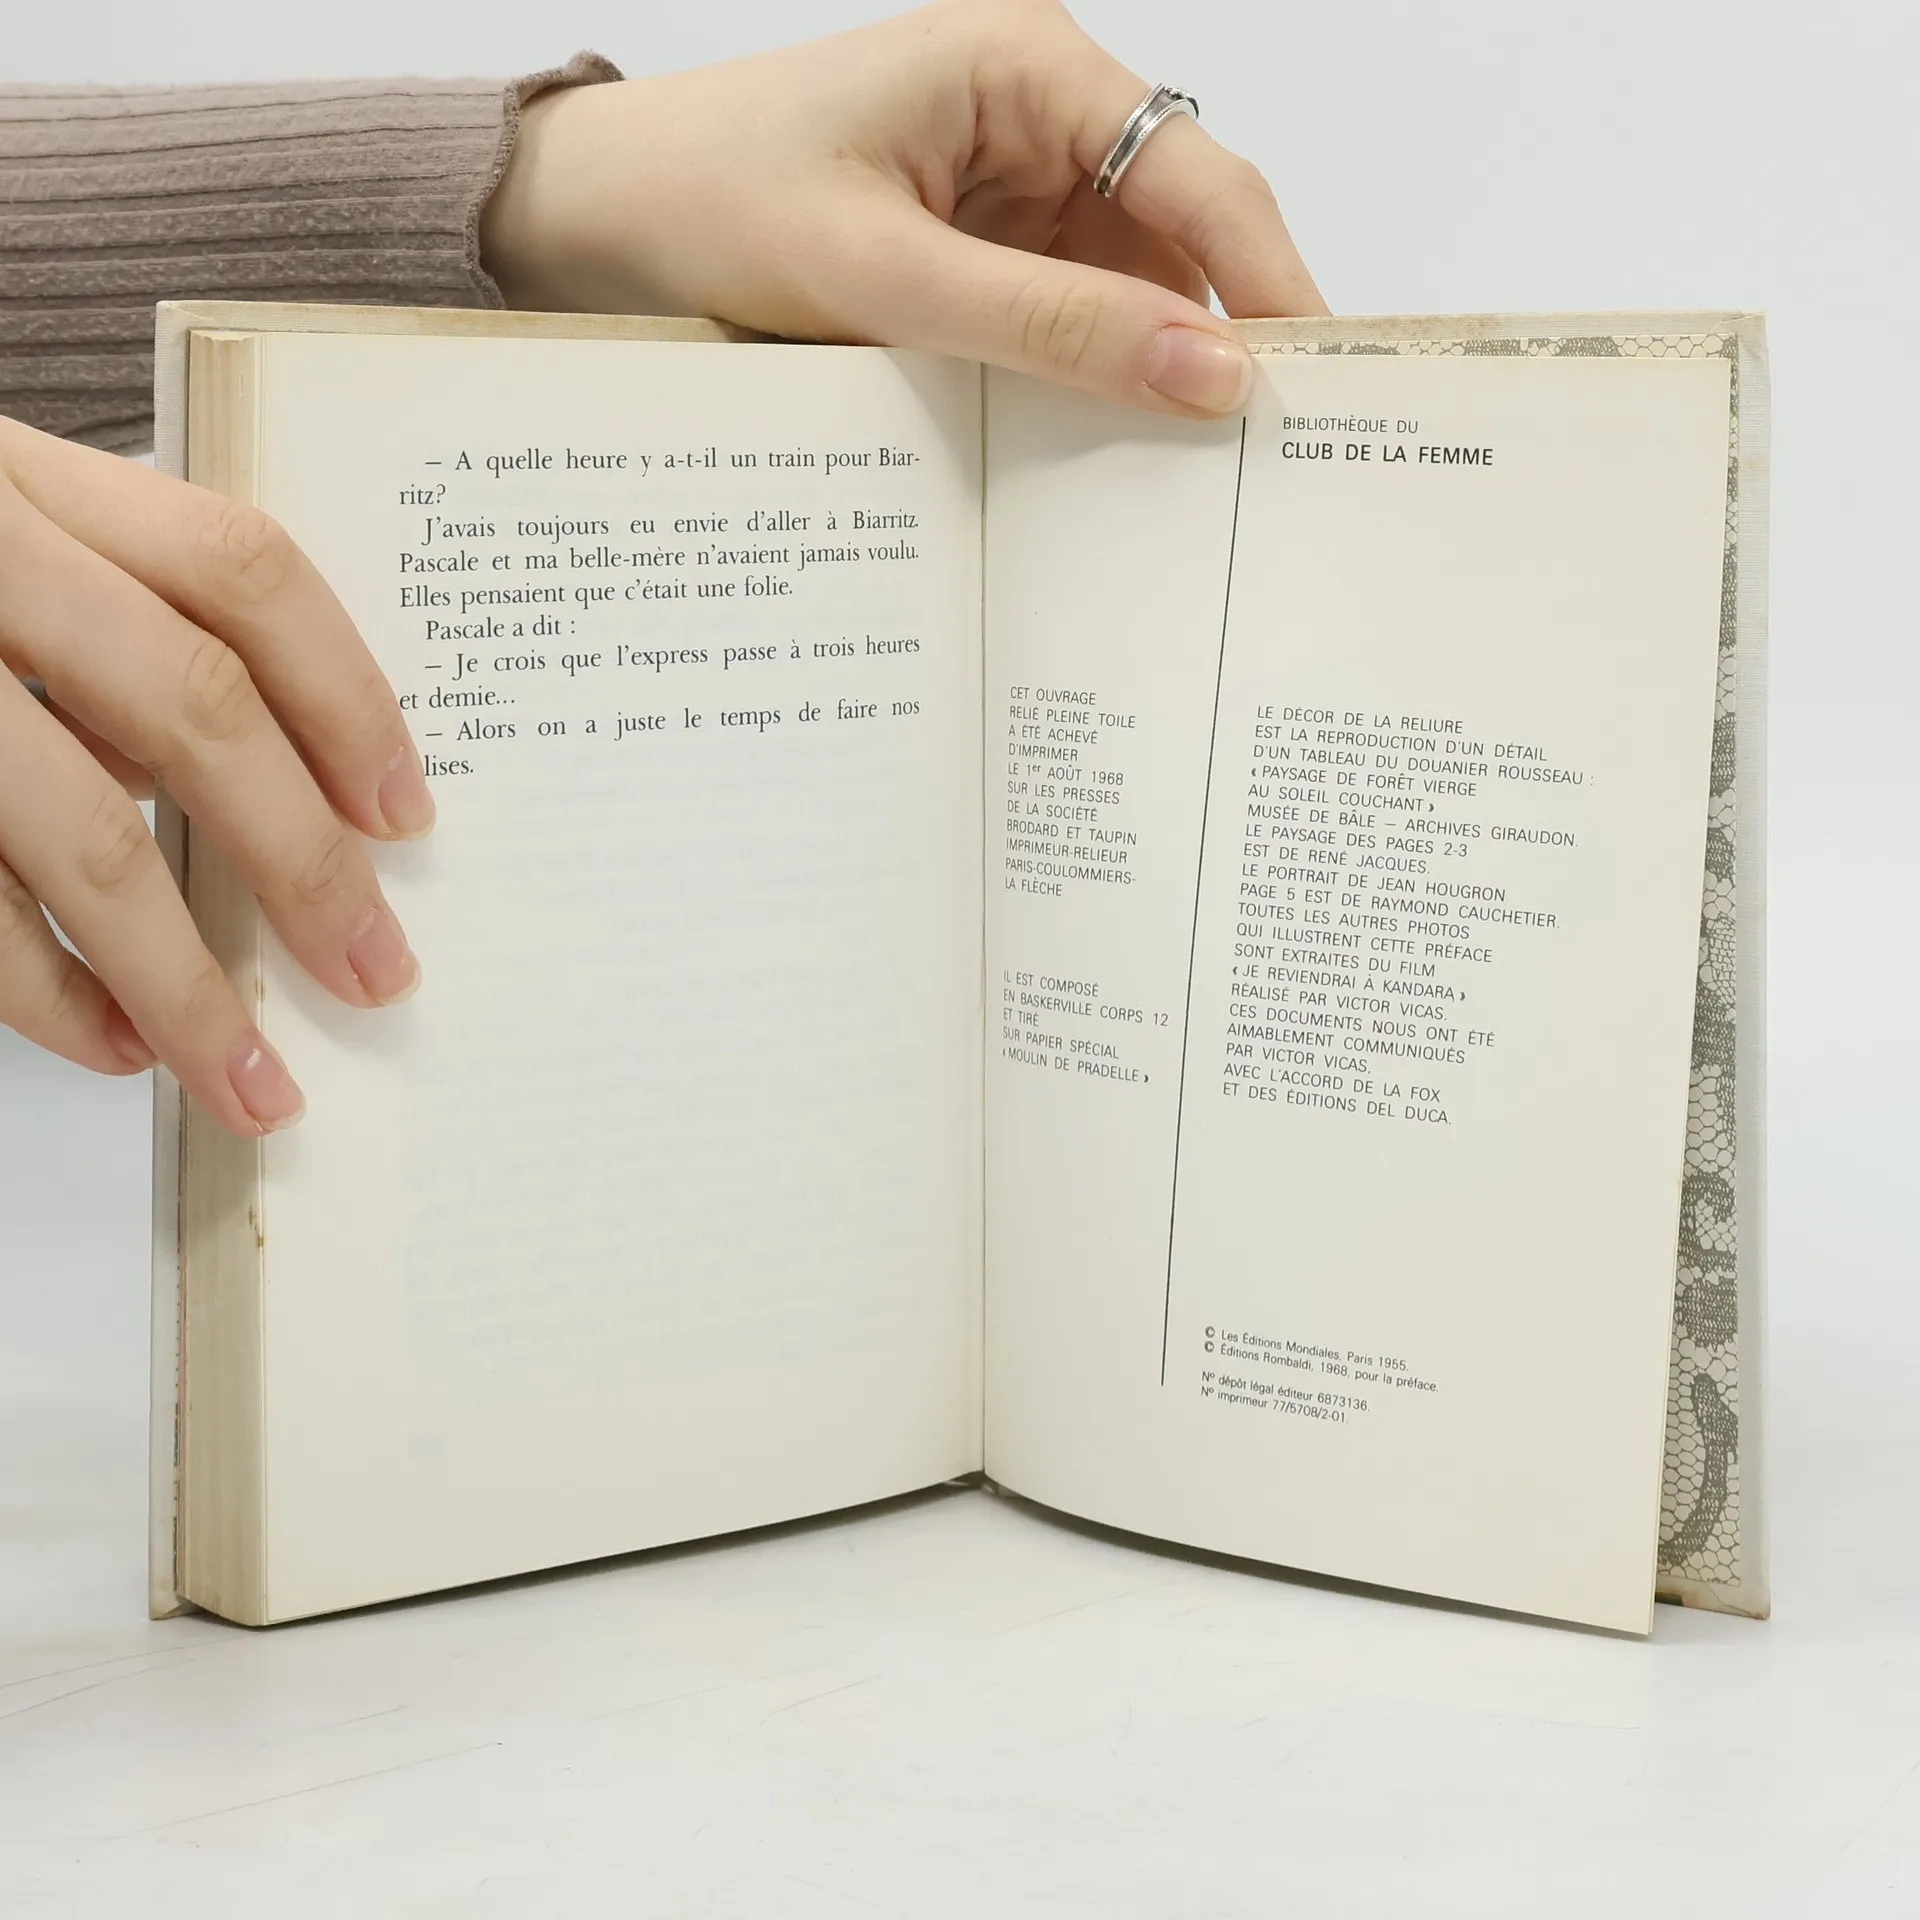 — A quelle heure y a-t-il un train pour Biar-
ritz?
J'avais toujours eu envie d'aller à Biarritz.
Pascale et ma belle-mère n'avaient jamais voulu.
Elles pensaient que c'était une folie.
Pascale a dit :
— Je crois que l'express passe à trois heures
et demie...
— Alors on a juste le temps de faire nos
lises.
CET OUVRAGE
RELIÉ PLEINE TOILE
A ÉTÉ ACHEVÉ
D'IMPRIMER
LE 1er AOÛT 1968
SUR LES PRESSES
DE LA SOCIÉTÉ
BRODARD ET TAUPIN
IMPRIMEUR-RELIEUR
PARIS-COULOMMIERS-
LA FLÈCHE
IL EST COMPOSÉ
EN BASKERVILLE CORPS 12
ET TIRÉ
SUR PAPIER SPÉCIAL
« MOULIN DE PRADELLE »
BIBLIOTHÈQUE DU
CLUB DE LA FEMME
LE DÉCOR DE LA RELIURE
EST LA REPRODUCTION D'UN DÉTAIL
D'UN TABLEAU DU DOUANIER ROUSSEAU :
« PAYSAGE DE FORÊT VIERGE
AU SOLEIL COUCHANT »
MUSÉE DE BÂLE — ARCHIVES GIRAUDON.
LE PAYSAGE DES PAGES 2-3
EST DE RENÉ JACQUES.
LE PORTRAIT DE JEAN HOUGRON
PAGE 5 EST DE RAYMOND CAUCHETIER.
TOUTES LES AUTRES PHOTOS
QUI ILLUSTRENT CETTE PRÉFACE
SONT EXTRAITES DU FILM
« JE REVIENDRAI À KANDARA »
RÉALISÉ PAR VICTOR VICAS.
CES DOCUMENTS NOUS ONT ÉTÉ
AIMABLEMENT COMMUNIQUÉS
PAR VICTOR VICAS,
AVEC L'ACCORD DE LA FOX
ET DES ÉDITIONS DEL DUCA.
© Les Éditions Mondiales, Paris 1955.
© Éditions Rombaldi, 1968, pour la préface.
Nº dépôt légal éditeur 6873136.
Nº imprimeur 77/5708/2-01.